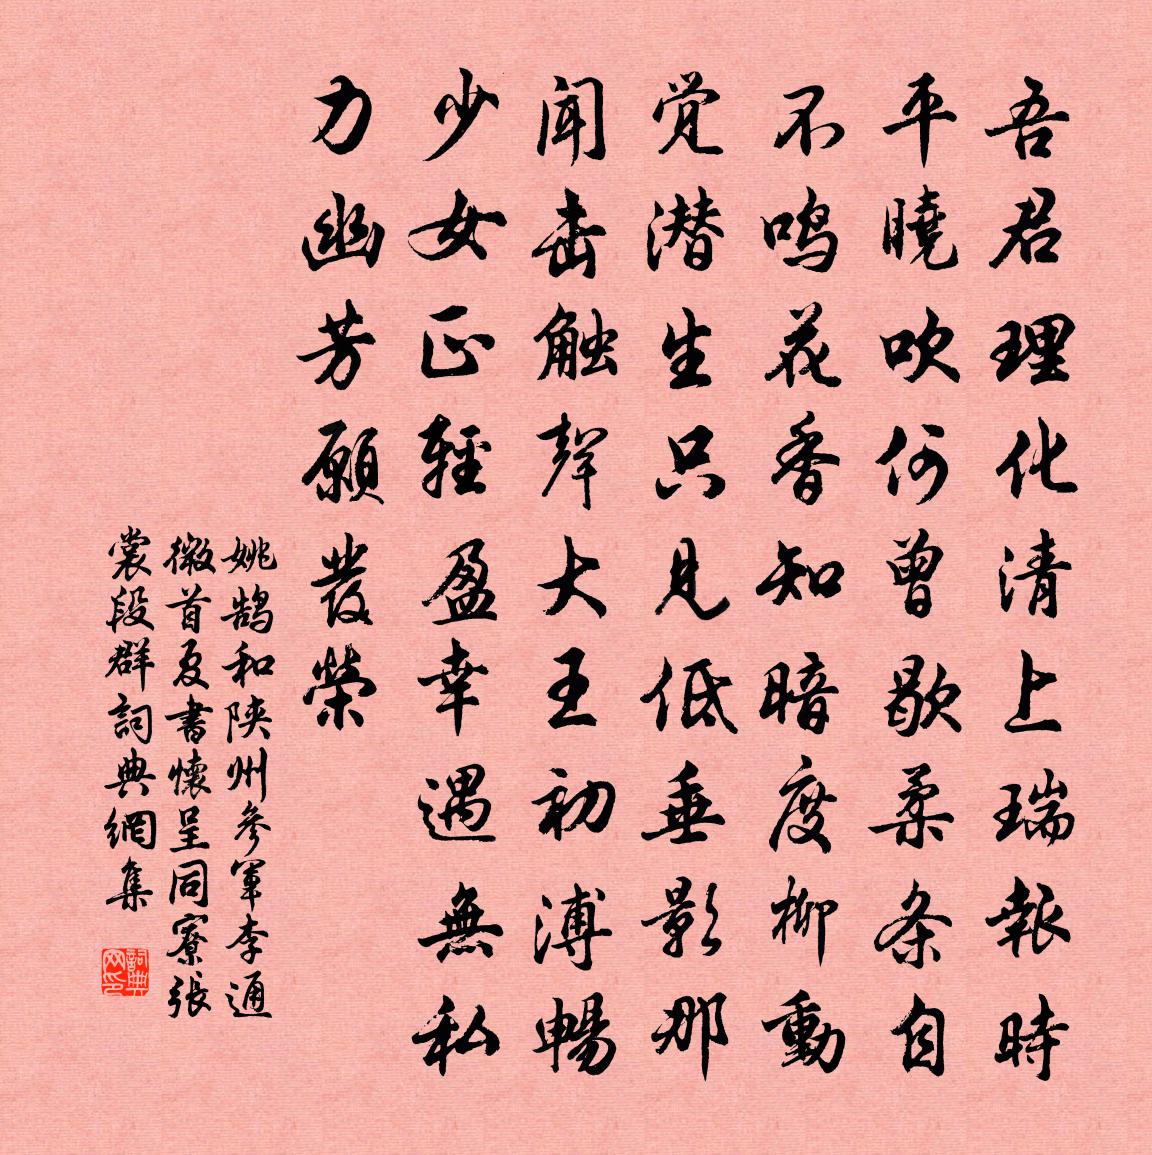 吾君理化清上瑞報時
平曉吹何曾歇柔条自
不鸣花香知暗度柳動
觉潜生只見低垂影那
闻击触聲大王初溥暢
少女正輕盈幸遇無私
力幽芳願發榮
姚鹄和陝州參軍李通
微首夏書懷呈同寮張
裳段群詞典網集
詞典网印